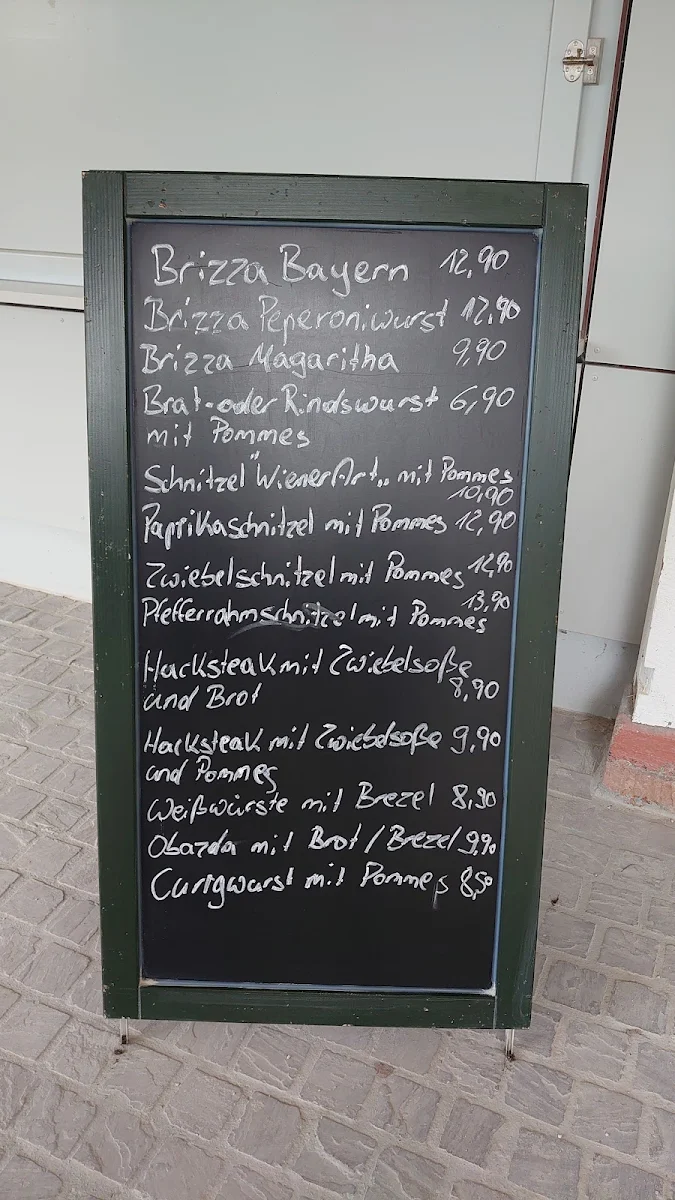 Brizza Bayern 12,90
Brizza Peperoniwurst 12,90
Brizza Magaritha 9,90
Brat-oder Rindswurst 6,90
mit Pommes
Schnitzel "Wiener Art„ mit Pommes
10,90
Paprikaschnitzel mit Pommes 12,90
Zwiebelschnitzel mit Pommes 12,90
Pfefferrahmschnitzel mit Pommes 13,90
Hacksteak mit Zwiebelsoße
und Brot 8,90
Hacksteak mit Zwiebelsoße 9,90
und Pommes
Weißwürste mit Brezel 8,90
Obazda mit Brot / Brezel 9,90
Currywurst mit Pommes 8,50